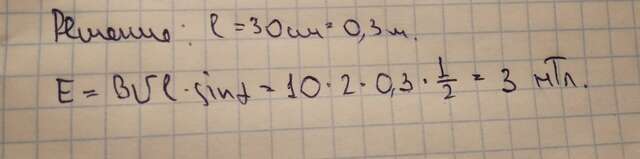 Решение: l = 30см = 0,3м.
E = Bυl · sinα = 10 · 2 · 0,3 · 1/2 = 3 мТл.